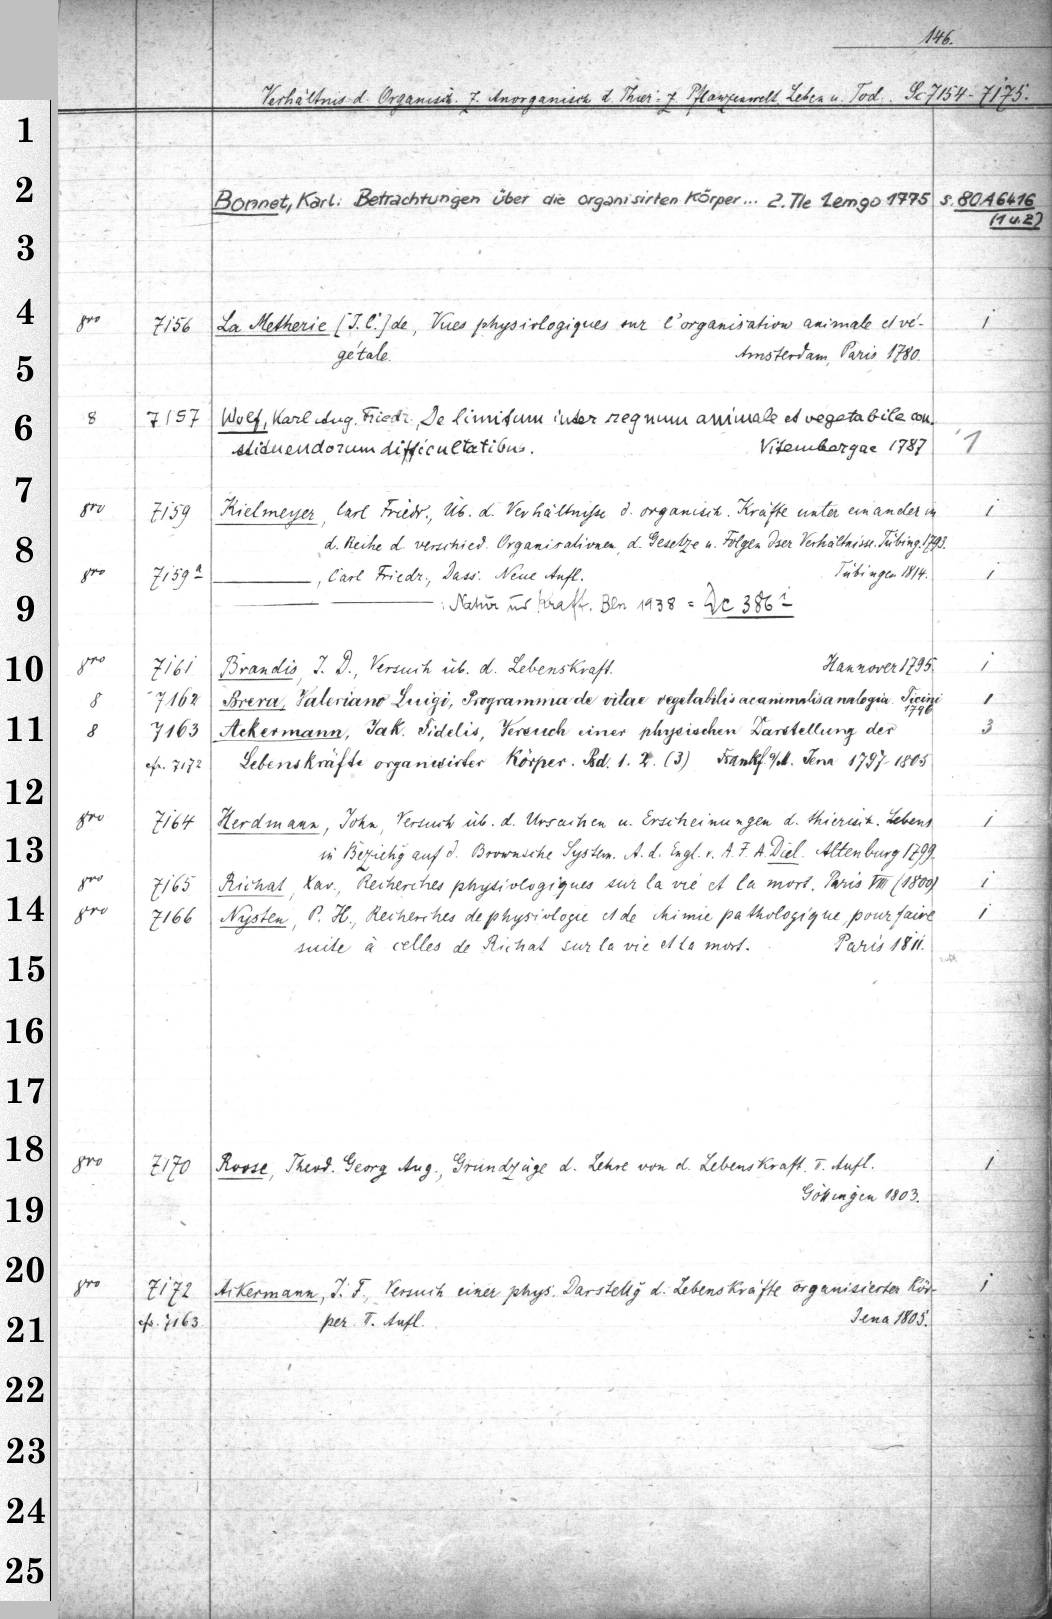 146.
Verhältnis d. Organisch. z. Anorganisch d. Thier- z. Pflanzenwelt. Leben u. Tod. Sc 7154-7175.
1
2 Bonnet, Karl: Betrachtungen über die organisirten Körper... 2. Tle Lemgo 1775 s. 80A6416
(1 u. 2)
3
4 8vo 7156 La Metherie [J. C.] de, Vues physiologiques sur l'organisation animale et vé- 1
5 gétale. Amsterdam, Paris 1780.
6 8 7157 Wolf, Karl Aug. Friedr., De limitum inter regnum animale et vegetabile con-
stituendorum difficultatibus. Vitembergae 1787 1
7 8vo 7159 Kielmeyer, Carl Friedr., Üb. d. Verhältnisse d. organisch. Kräfte unter einander in 1
8 d. Reihe d. verschied. Organisationen, d. Gesetze u. Folgen dser Verhältnisse. Tübing. 1793.
8vo 7159a ———, Carl Friedr., Dass. Neue Aufl. Tübingen 1814. 1
9 ——— ———: Natur und Kraft. Bln 1938 =
10 8vo 7161 Brandis, J. D., Versuch üb. d. Lebenskraft. Hannover 1795. 1
8 7162 Brera, Valeriano Luigi, Programma de vitae vegetabilis ac animalis analogia. Ticini 1796 1
11 8 7163 Ackermann, Jak. Fidelis, Versuch einer physischen Darstellung der 3
cfr. 7172 Lebenskräfte organisirter Körper. Bd. 1. 2. (3) Frankf. a/M. Jena 1797-1805
12
8vo 7164 Herdmann, John, Versuch üb. d. Ursachen u. Erscheinungen d. thierisch. Lebens 1
13 in Beziehg auf d. Brownsche System. A. d. Engl. v. A. F. A. Diel. Altenburg 1799.
8vo 7165 Bichat, Xav., Recherches physiologiques sur la vie et la mort. Paris VIII (1800) 1
14 8vo 7166 Nysten, P. H., Recherches de physiologie et de chimie pathologique, pour faire 1
suite à celles de Bichat sur la vie et la mort. Paris 1811.
15
16
17
18 8vo 7170 Roose, Theod. Georg Aug., Grundzüge d. Lehre von d. Lebenskraft. II. Aufl. 1
19 Göttingen 1803.
20 8vo 7172 Ackermann, J. F., Versuch einer phys. Darstellg d. Lebenskräfte organisierter Kör- 1
21 cfr. 7163 per II. Aufl. Jena 1805.
22
23
24
25